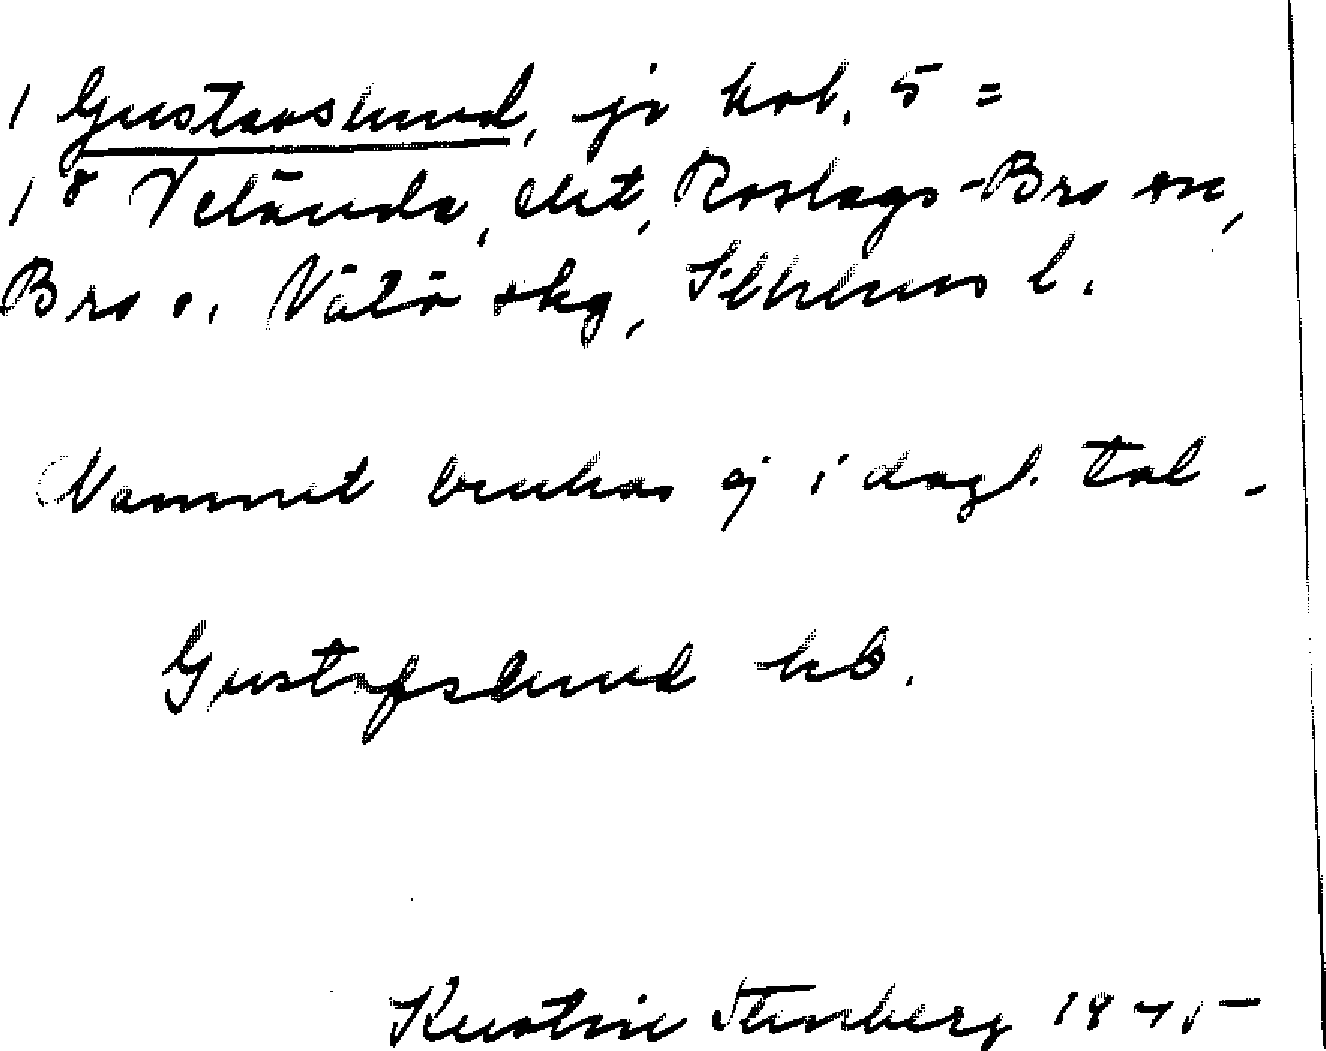 1 Gustavslund, jr kol. 5 =
1⁸ Velända, dit, Roslags-Bro sn,
Bro o. Vätö skg, Sthlms l.
Namnet brukas ej i dagl. tal.
Gustafslund kb.
Kerstin Stenberg 1945